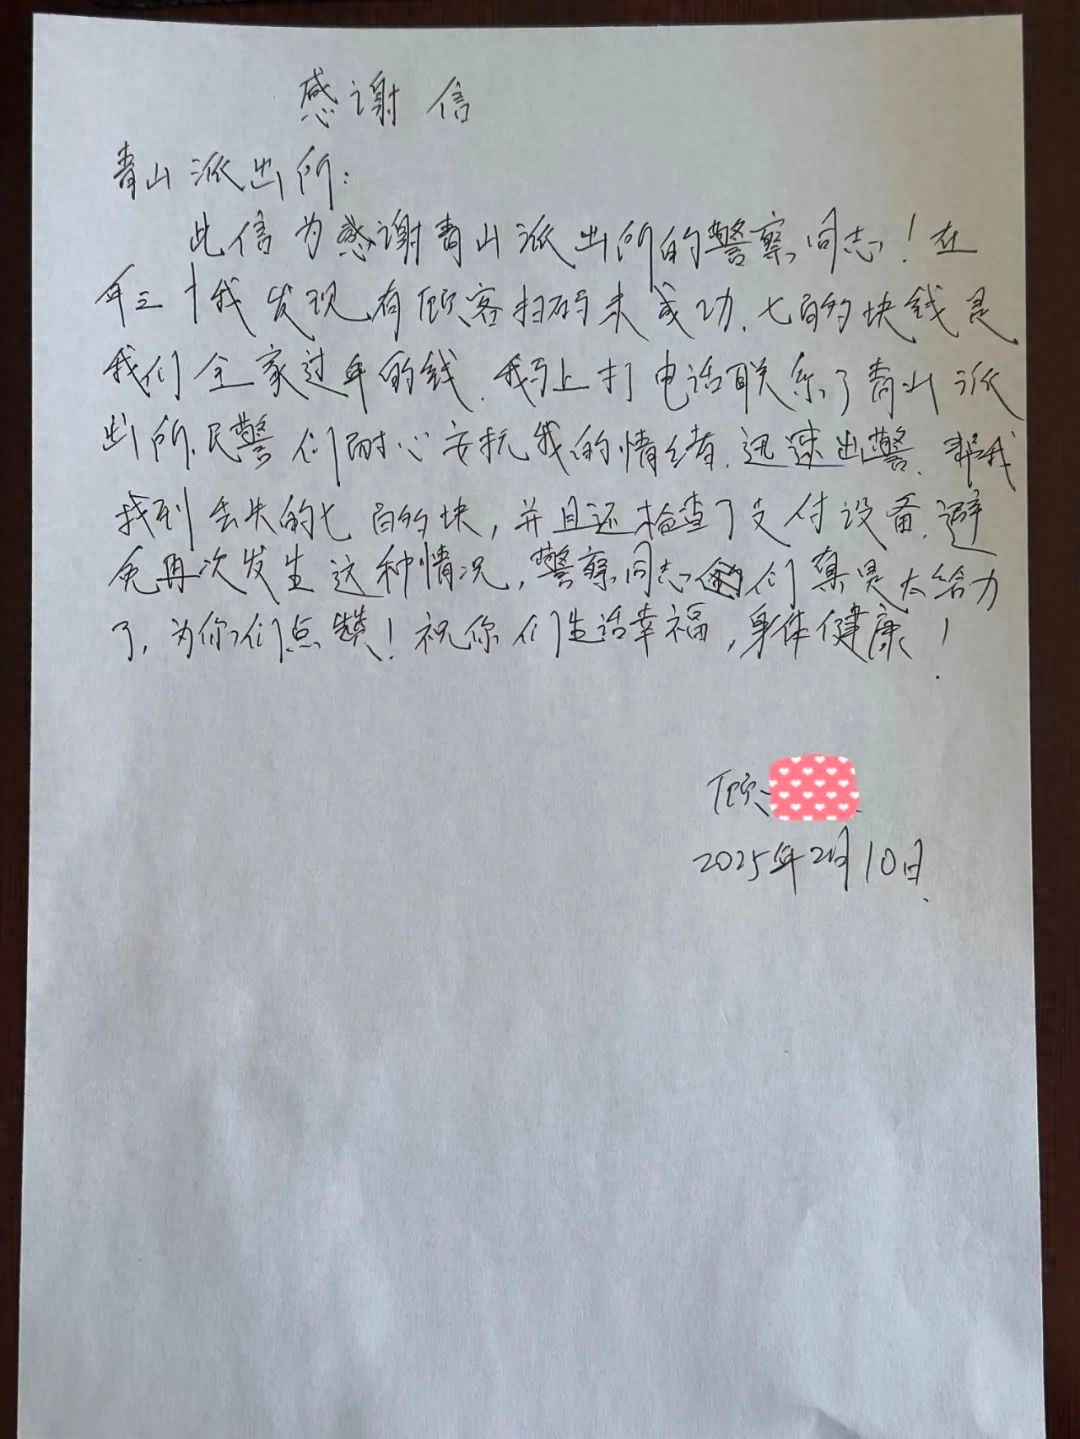 感谢信
青山派出所:
此信为感谢青山派出所的警察同志!在
年三十我发现有顾客扫码未成功.七百多块钱是
我们全家过年的钱.我马上打电话联系了青山派
出所.民警们耐心安抚我的情绪.迅速出警.帮我
找到丢失的七百多块,并且还检查了支付设备.避
免再次发生这种情况,警察同志们真是太给力
了,为你们点赞!祝你们生活幸福,身体健康!
顾
2025年2月10日